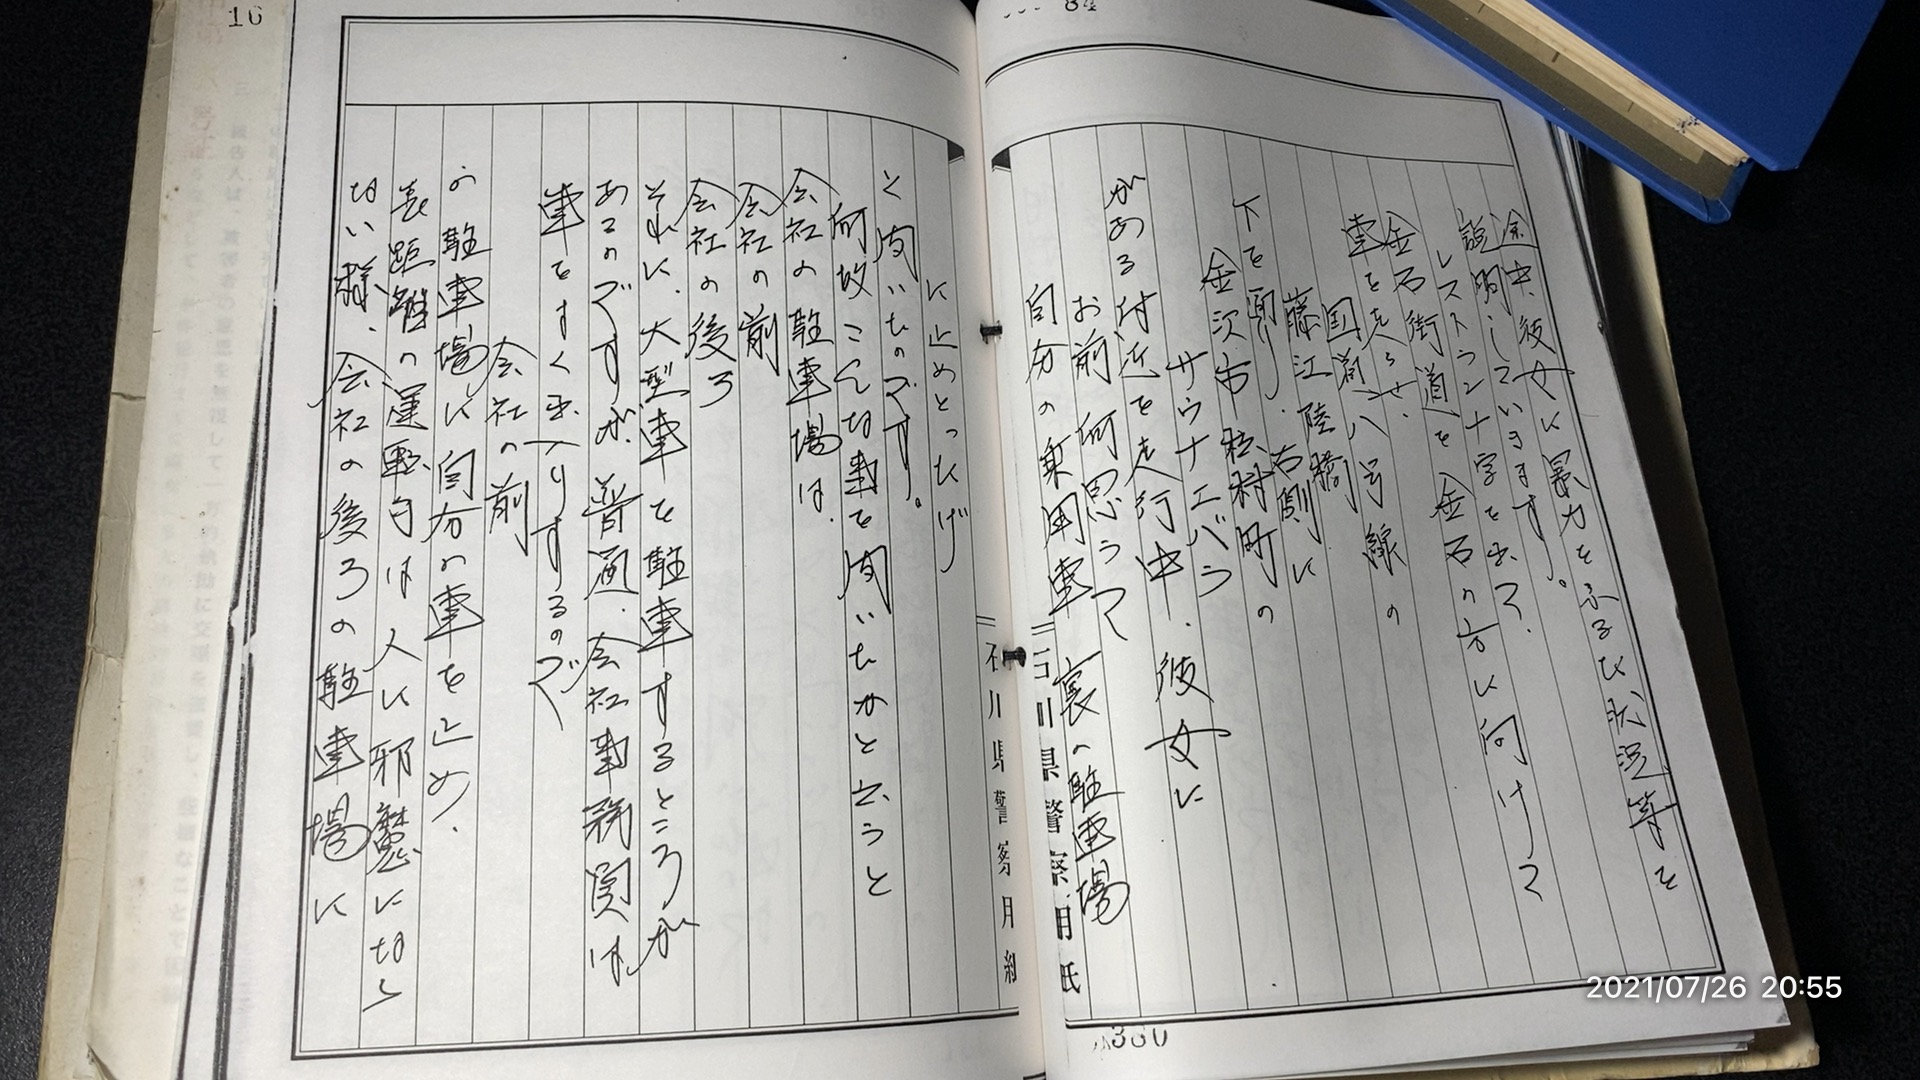 84
途中、彼女に暴力をふるた状況等を
説明しています。
レストラン十字を出て、
金石街道を金石の方に向けて
車を走らせ、
国道八号線の
藤江陸橋
下を
右側に
金沢市松村町の
サウナエバラ
がある付近を走行中、彼女に
お前何思うて裏の駐車場
自分の乗用車
に止めとったんげ
と聞いたのです。
何故こんな事を聞いたかと云うと
会社の駐車場は、
会社の前
会社の後ろ
それに、大型車を駐車するところが
あるのですが、普通、会社事務関は、
車をすぐ出入りするので
会社の前
の駐車場に自分の車を止め、
長距離の運転手は人に邪魔になら
ない様、会社の後ろの駐車場に
石川県警察用紙
石川県警察用紙
380
16
2021/07/26 20:55